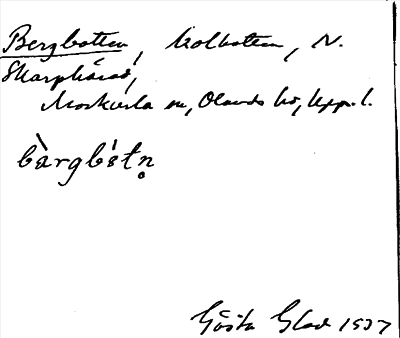 Bergbotten, Kolbotten, N.
Skarphärad,
Morkarla sn, Olands hd, Uppl.
bàrgbɷ́tn̥
Gösta Glad 1937